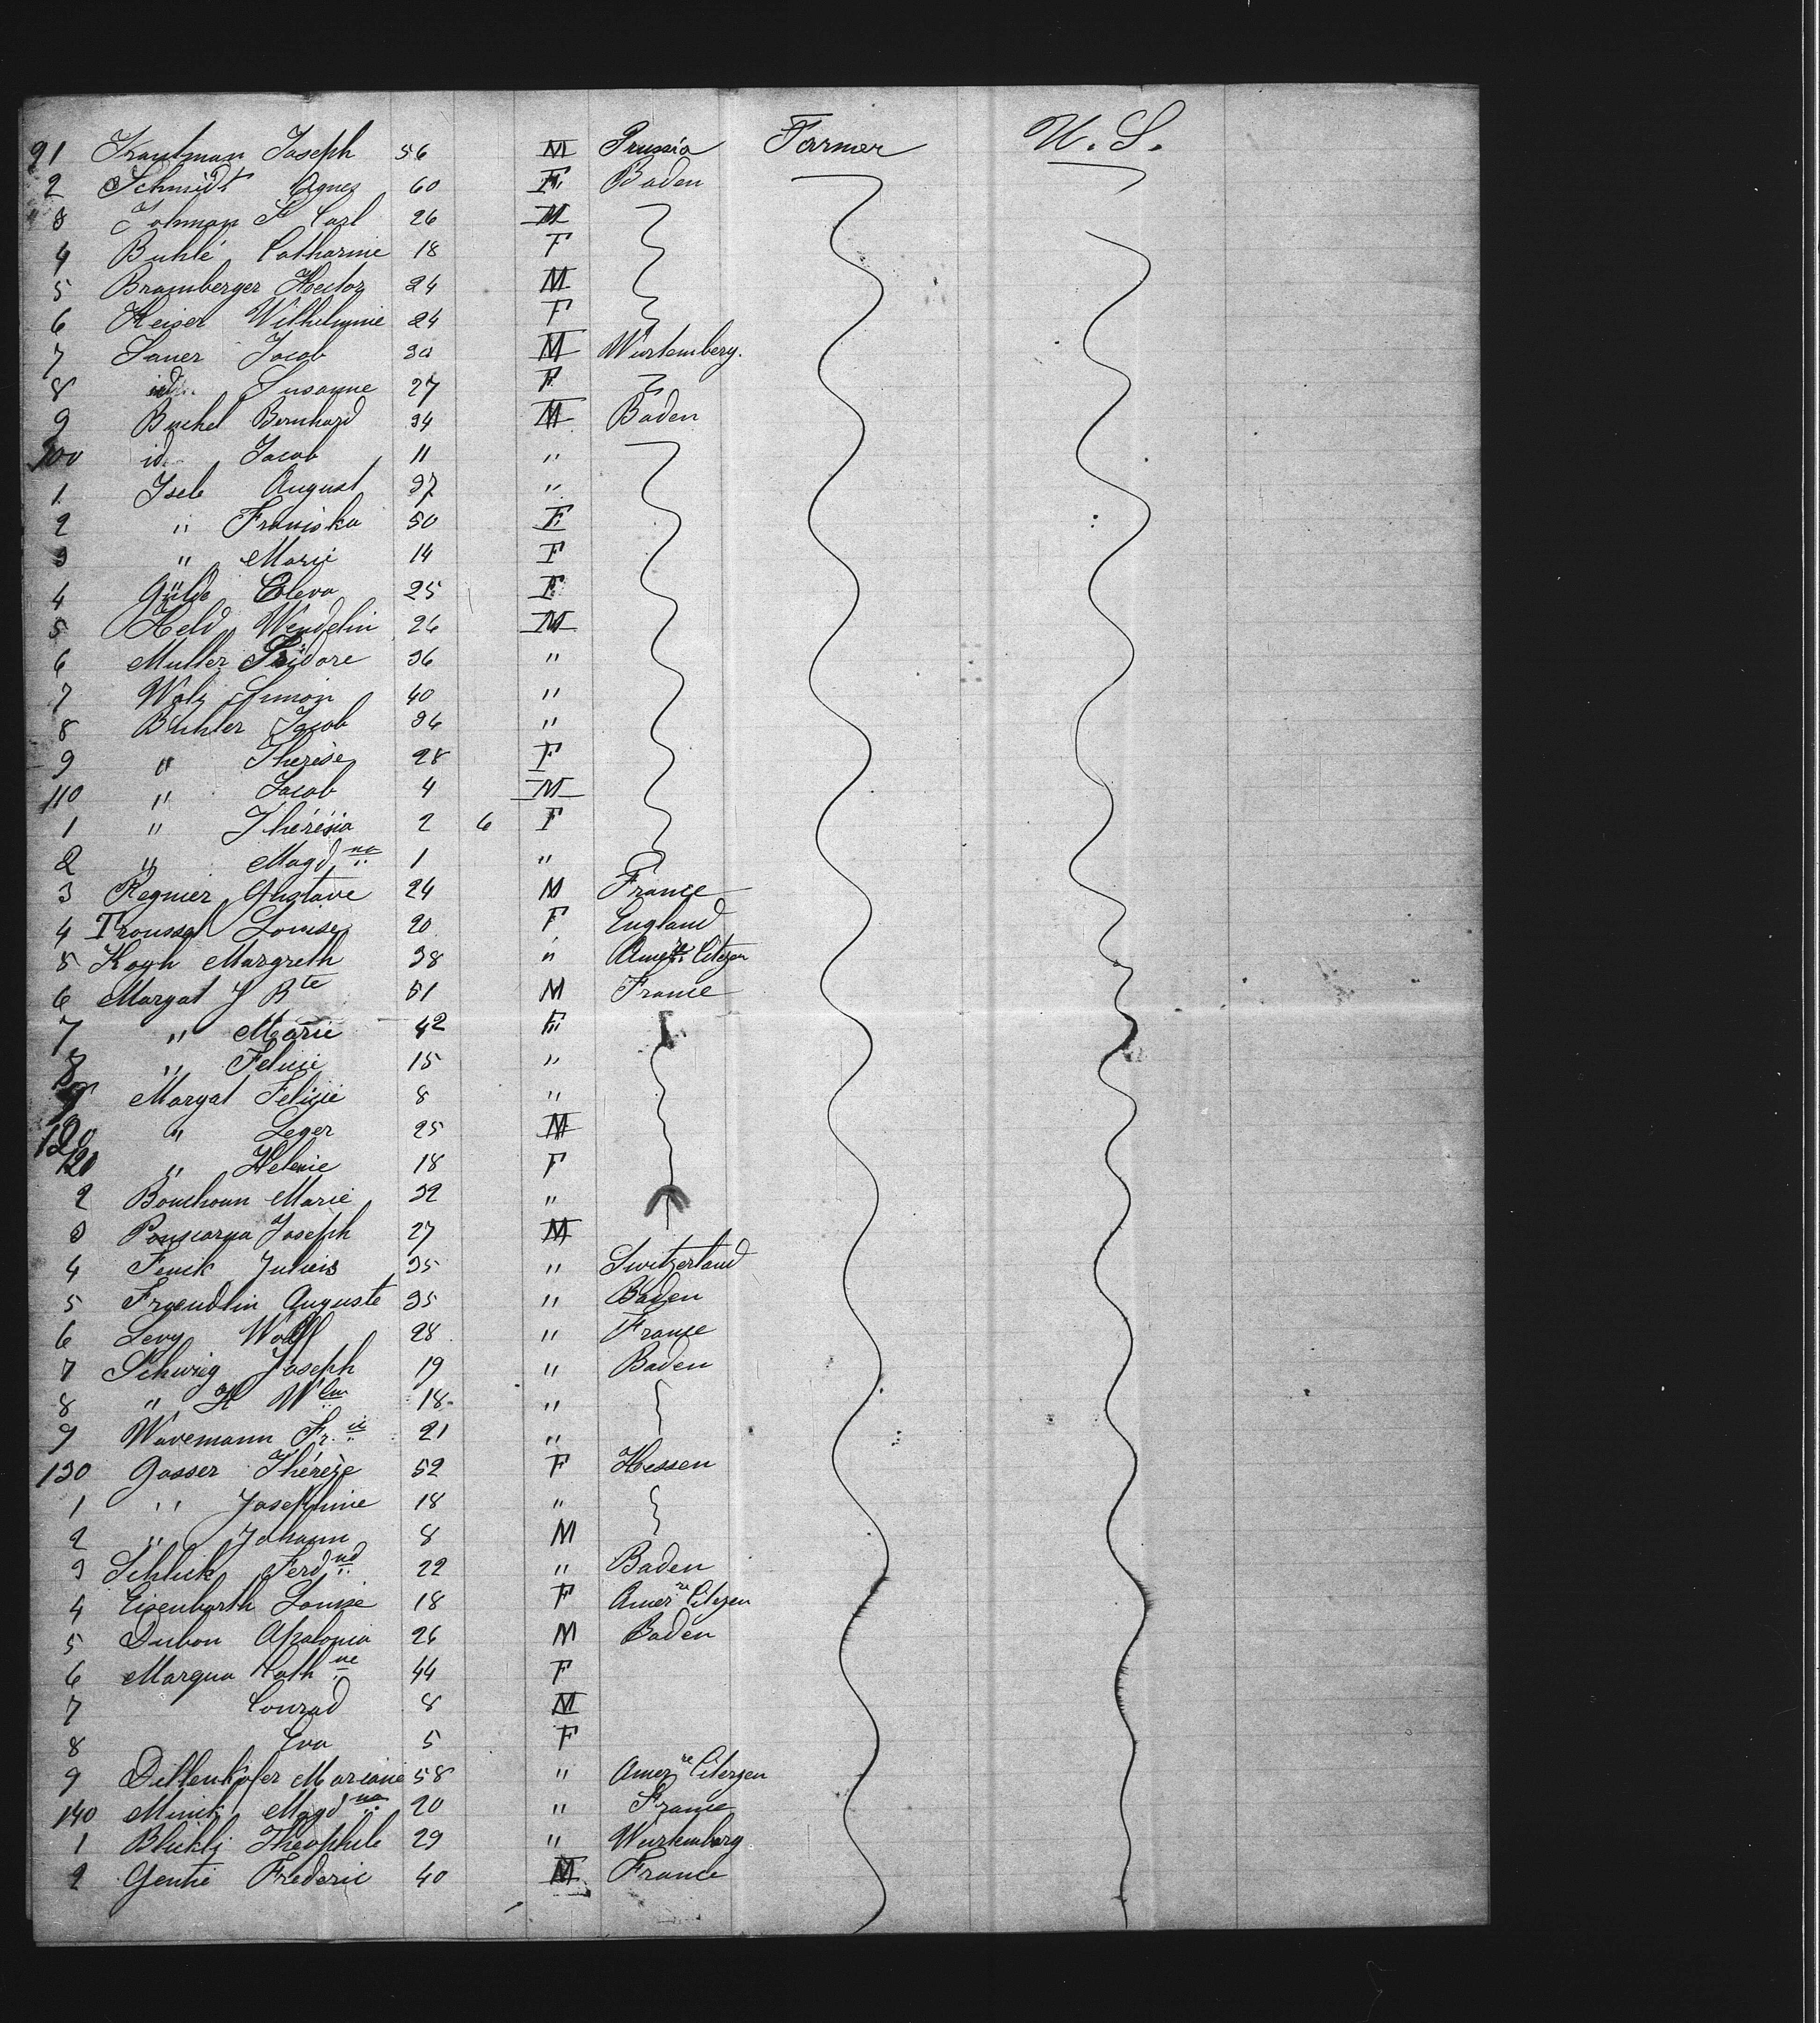 91 Kaufman Joseph 56 M Prussia Farmer U. S.
2 Schmidt Agnes 60 F Baden
3 Johman F Carl 26 M
4 Buhlé Catharine 18 F
5 Bramberger Hector 24 M
6 Keiser Wilhelmine 24 F
7 Sauer Jacob 30 M Wurtemberg.
8 id. Susanne 27 F
9 Buchel Bernhard 34 M Baden
100 id. Jacob 11 "
1 Isele August 37 "
2 " Franiska 50 F
3 " Marie 14 F
4 Gülde 25 F
5 Held Wendelin 26 M
6 Muller Isidore 36 "
7 Walz Simon 40 "
8 Buhler Jacob 36 "
9 " Thérèse 28 F
110 " Jacob 4 M
1 " Thérésia 2 6 F
2 " Magd na 1 "
3 Regnier Gustave 24 M France
4 Troussel Louise 20 F England
5 Kogh Margreth 38 " Citezen
6 Margat J Bte 51 M France
7 " Marie 42 F
8 " Felicie 15 "
9 Margat Felicie 8 "
120 " Leger 25 M
120 " Helenie 18 F
2 Bouchoun Marie 32 "
3 Joseph 27 M
4 Julius 35 " Switzerland
5 Freundlin Auguste 35 " Baden
6 Levy Wolff 28 " France
7 Schwig Joseph 19 " Baden
8 " H Wlm 18 "
9 Wavemann Fr. 21 "
130 Gasser Thérèse 52 F Hessen
1 " Josephine 18 "
2 " Johann 8 M
3 Schlick Ferd nd 22 " Baden
4 Eisenbarth Louise 18 F Amer re Citezen
5 Dubon Apalonia 26 M Baden
6 Marqua Cath ne 44 F
7 Conrad 8 M
8 Eva 5 F
9 Dillenkofer Mariane 58 " Amer re Citezen
140 Minik Magd na 20 " France
1 Theophile 29 " Wurtemberg
2 Gentié Frederic 40 M France